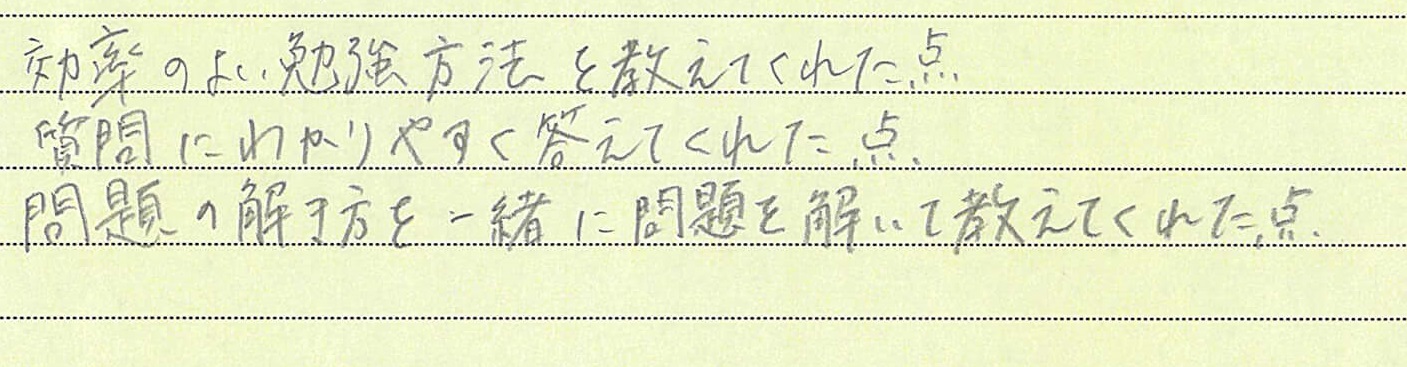 効率のよい勉強方法を教えてくれた点.
質問にわかりやすく答えてくれた点.
問題の解き方を一緒に問題を解いて教えてくれた点.